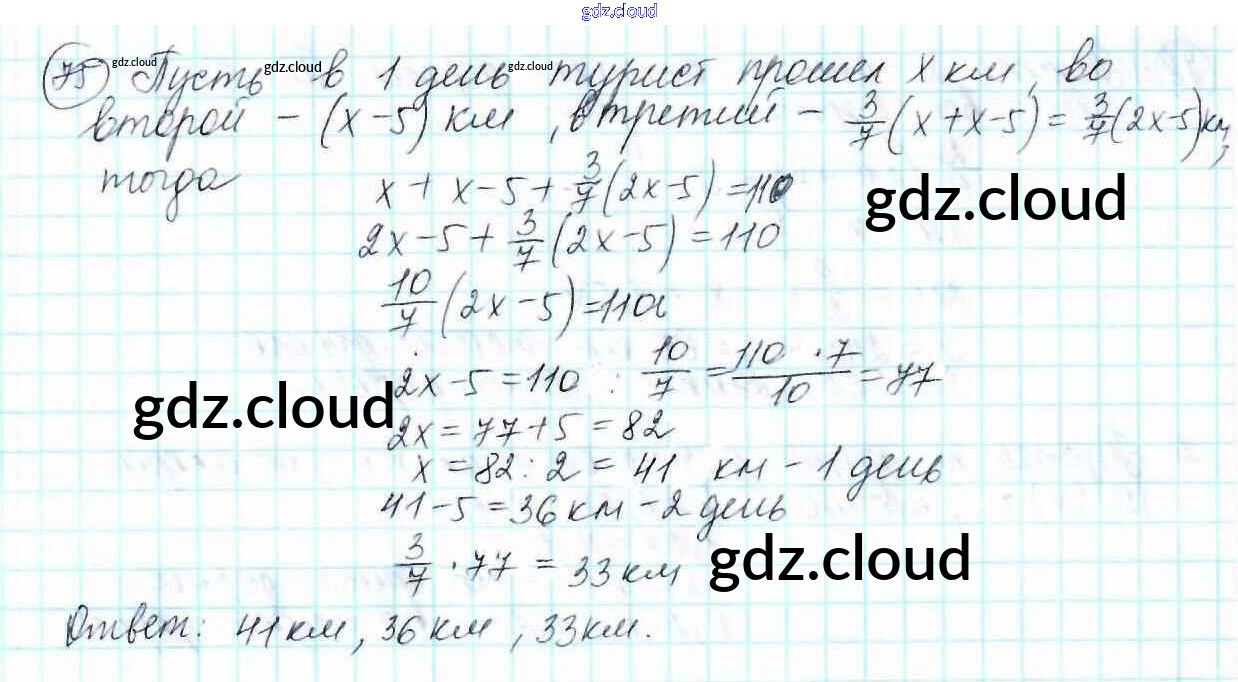 gdz.cloud
75 gdz.cloud Пусть gdz.cloud в 1 день gdz.cloud турист прошел x км, во
второй – (x – 5) км, в третий – 3/7 (x + x – 5) = 3/7 (2x – 5) км,
тогда
x + x – 5 + 3/7 (2x – 5) = 110
gdz.cloud
2x – 5 + 3/7 (2x – 5) = 110
10/7 (2x – 5) = 110
2x – 5 = 110 : 10/7 = 110 · 7/10 = 77
gdz.cloud
2x = 77 + 5 = 82
x = 82 : 2 = 41 км – 1 день
41 – 5 = 36 км – 2 день
3/7 · 77 = 33 км
gdz.cloud
Ответ: 41 км, 36 км, 33 км.